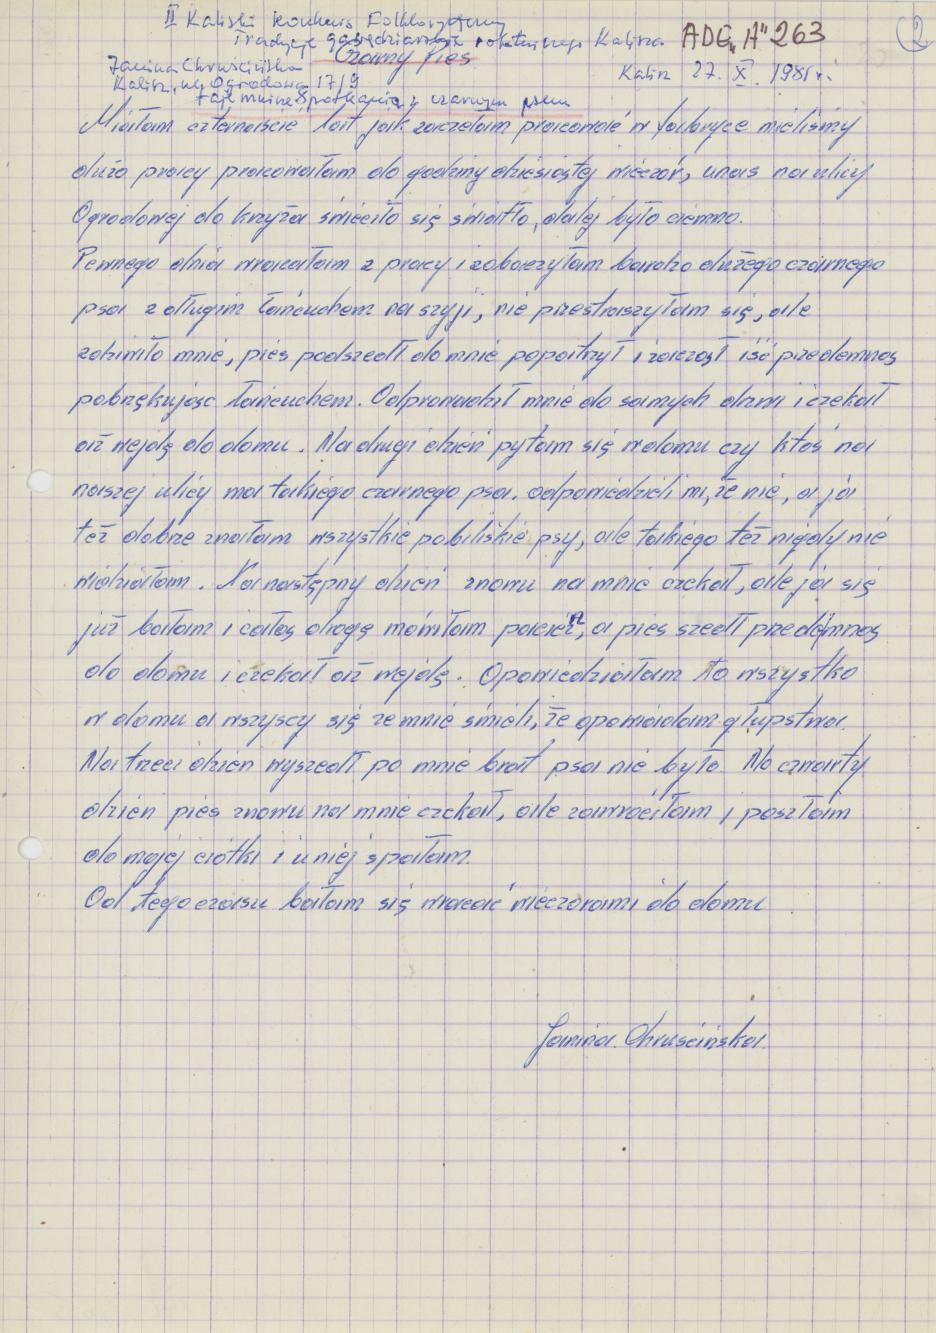 II Kaliski Konkurs Folklorystyczny
Tradycje gawędziarskie robotniczego Kalisza ADG „A" 263 2
Czarny Pies.
Janina Chruścińska Kalisz 27. X. 1981 r.
Kalisz, ul. Ogrodowa 17/9
Tajemnicze Spotkania z czarnym psem
Miałam czternaście lat jak zaczełam pracować w fabryce mieliśmy
dużo pracy pracowałam do godziny dziesiątej wieczór, unas na ulicy
Ogrodowej do krzyża świeciło się światło, dalej było ciemno.
Pewnego dnia wracałam z pracy i zobaczyłam bardzo dużego czarnego
psa z długim łańcuchem na szyji, nie przestraszyłam się, ale
zdziwiło mnie, pies podszedł do mnie popatrzył i zaczął iść przedemną
pobrzękując łańcuchem. Odprowadził mnie do samych drzwi i czekał
aż wejdę do domu. Na drugi dzień pytam się w domu czy ktoś na
naszej ulicy ma takiego czarnego psa. odpowiedzieli mi, że nie, a ja
też dobrze znałam wszystkie pobliskie psy, ale takiego też nigdy nie
widziałam. Na następny dzień znowu na mnie czekał, ale ja się
już bałam i całą drogę mówiłam pacierz, a pies szedł przedemną
do domu i czekał aż wejdę. Opowiedziałam to wszystko
w domu a wszyscy się ze mnie śmieli, że opowiadam głupstwa.
Na trzeci dzień wyszedł po mnie brat psa nie było. Na czwarty
dzień pies znowu na mnie czekał, ale zawróciłam i poszłam
do mojej ciotki i u niej spałam.
Od tego czasu bałam się wracać wieczorami do domu
Janina Chruścińska.